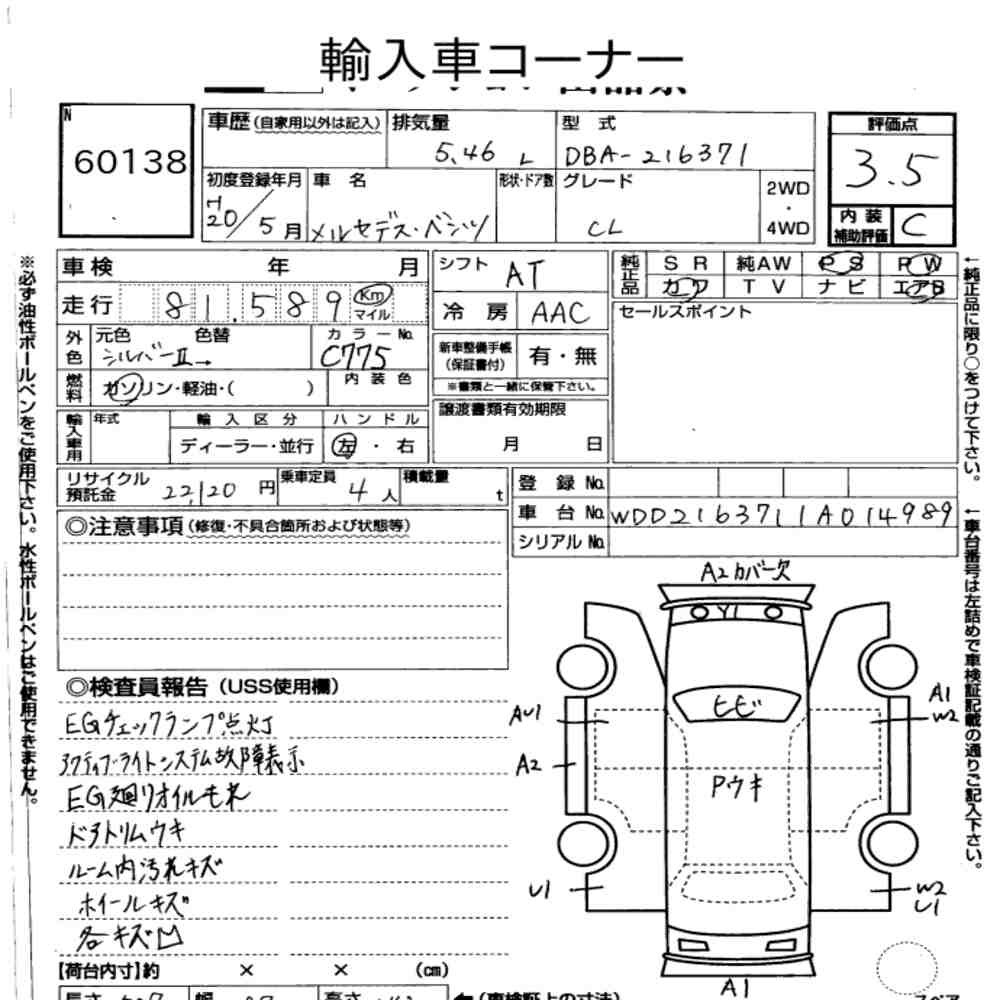 輸入車コーナー
N
60138
車歴(自家用以外は記入)
排気量
5.46 L
型 式
DBA-216371
評価点
3.5
内装補助評価
C
初度登録年月
H20/5月
車 名
メルセデス・ベンツ
形状・ドア数
グレード
CL
2WD
・
4WD
車検 年 月
走行 81,589 Km
マイル
外色
元色 色替
シルバーⅡ→
カラーNo.
C775
燃料
ガソリン・軽油・( )
内装色
輸入車用
年式
輸入区分
ディーラー・並行
ハンドル
左・右
シフト
AT
冷房
AAC
新車整備手帳
(保証書付)
有・無
※書類と一緒に保管下さい。
譲渡書類有効期限
月 日
純正品
SR 純AW PS PW
カワ TV ナビ エアB
セールスポイント
リサイクル
預託金
22,120 円
乗車定員
4人
積載量
t
登録No.
車台No. WDD2163711A014989
シリアルNo.
◎注意事項(修復・不具合箇所および状態等)
◎検査員報告(USS使用欄)
EGチェックランプ点灯
アクティブライトシステム故障表示
EG廻りオイルモレ
ドアトリムウキ
ルーム内汚れキズ
ホイールキズ
各キズ凹
【荷台内寸】約 × × (cm)
A2カバー欠
Y1
ヒビ
AU1
A1
W2
A2
Pウキ
U1
W2
U1
A1
※必ず油性ボールペンをご使用下さい。水性ボールペンはご使用できません。
←純正品に限り○をつけて下さい。
←車台番号は左詰めで車検証記載の通りご記入下さい。